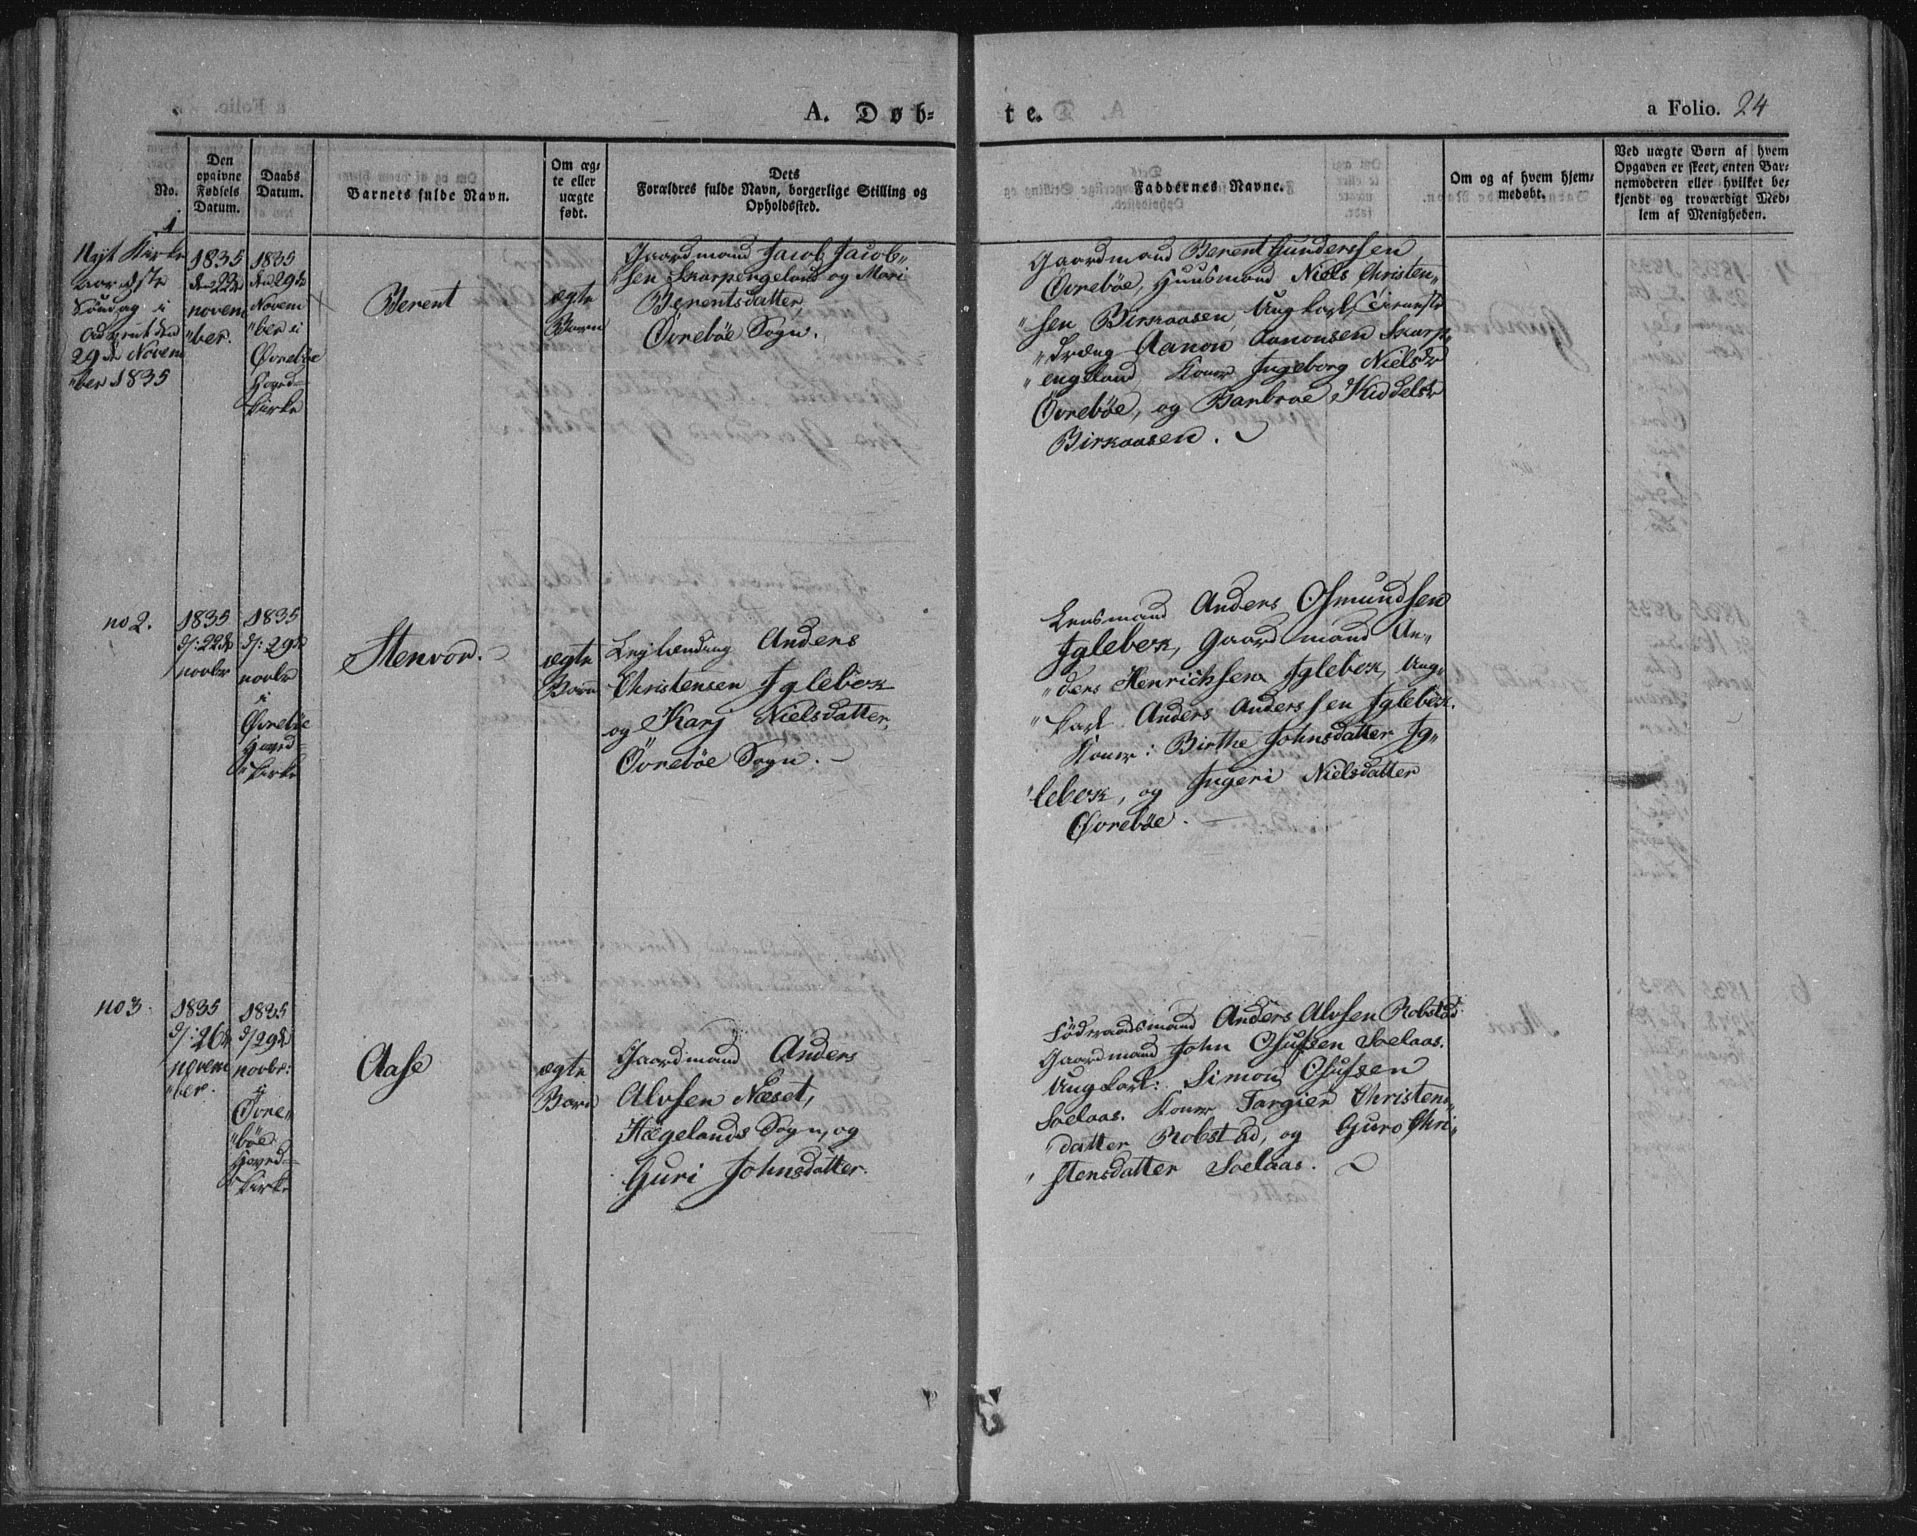 A. Døb-
te.
a Folio. 24
No.
Den
opgivne
Fødsels
Datum.
Daabs
Datum.
Barnets fulde Navn.
Om æg-
te eller
uægte
født.
Dets
Forældres fulde Navn, borgerlige Stilling og
Opholdssted.
Faddernes Navne.
Om og af hvem hjem-
medøbt.
Ved uægte Børn af hvem
Opgaven er skeet, enten Bar-
nemoderen eller hvilket be-
kjendt og troværdigt Med-
lem af Menigheden.
1
Nyt Kirke
aar 1ste
Søndag i
Advent den
29de Novem
"ber 1835
1835
d. 22de
novem
"ber.
1835
den 29de
Novem
"ber i
Øvrebøe
Hoved-
kirke
Berent
ægte
Barn
Gaardmand Jacob Jacob"
"sen Skarpengeland og Mari
Berentsdatter,
Øvrebøe Sogn.
Gaardmand Berent Gunderssen
Øvrebøe, Huusmand Niels Christen"
"sen Birkaasen, Ungkarl, Tieneste
"dræng Aanon Aanonsen Skarp"
"engeland, Koner Ingeborg Nielsdr
Øvrebøe, og Barbroe Kiddelsdr
Birkaasen.
no 2.
1835
d: 22de
novbr
1835
d: 29de
novbr
i
Øvrebøe
Hoved-
"kirke
Stenvor.
ægte
Barn
Leylænding Anders
Christensen Iglebæk
og Karj Nielsdatter,
Øvrebøe Sogn.
Lensmand Anders Osmundsen
Iglebæk, Gaardmand An"
"ders Henrichsen Iglebæk, Ung"
"karl Anders Anderssen Iglebæk.
Koner: Birthe Johnsdatter Ig"
"lebæk, og Ingeri Nielsdatter
Øvrebøe.
no 3.
1835
d: 26de
novem
"ber.
1835
d/29de
novbr:
i
Øvre"
"bøe
Hoved-
"kirke
Aase
ægte
Barn
Gaardmand Anders
Alvsen Næset,
Hægelands Sogn, og
Guri Johnsdatter.
Föderaadsmand Anders Alvsen Robstad
Gaardmand John Olufsen Soelaas.
Ungkarl: Simon Olufsen
Soelaas. Koner Targier Christens"
"datter Robstad, og Guro Chri"
"stensdatter Soelaas.